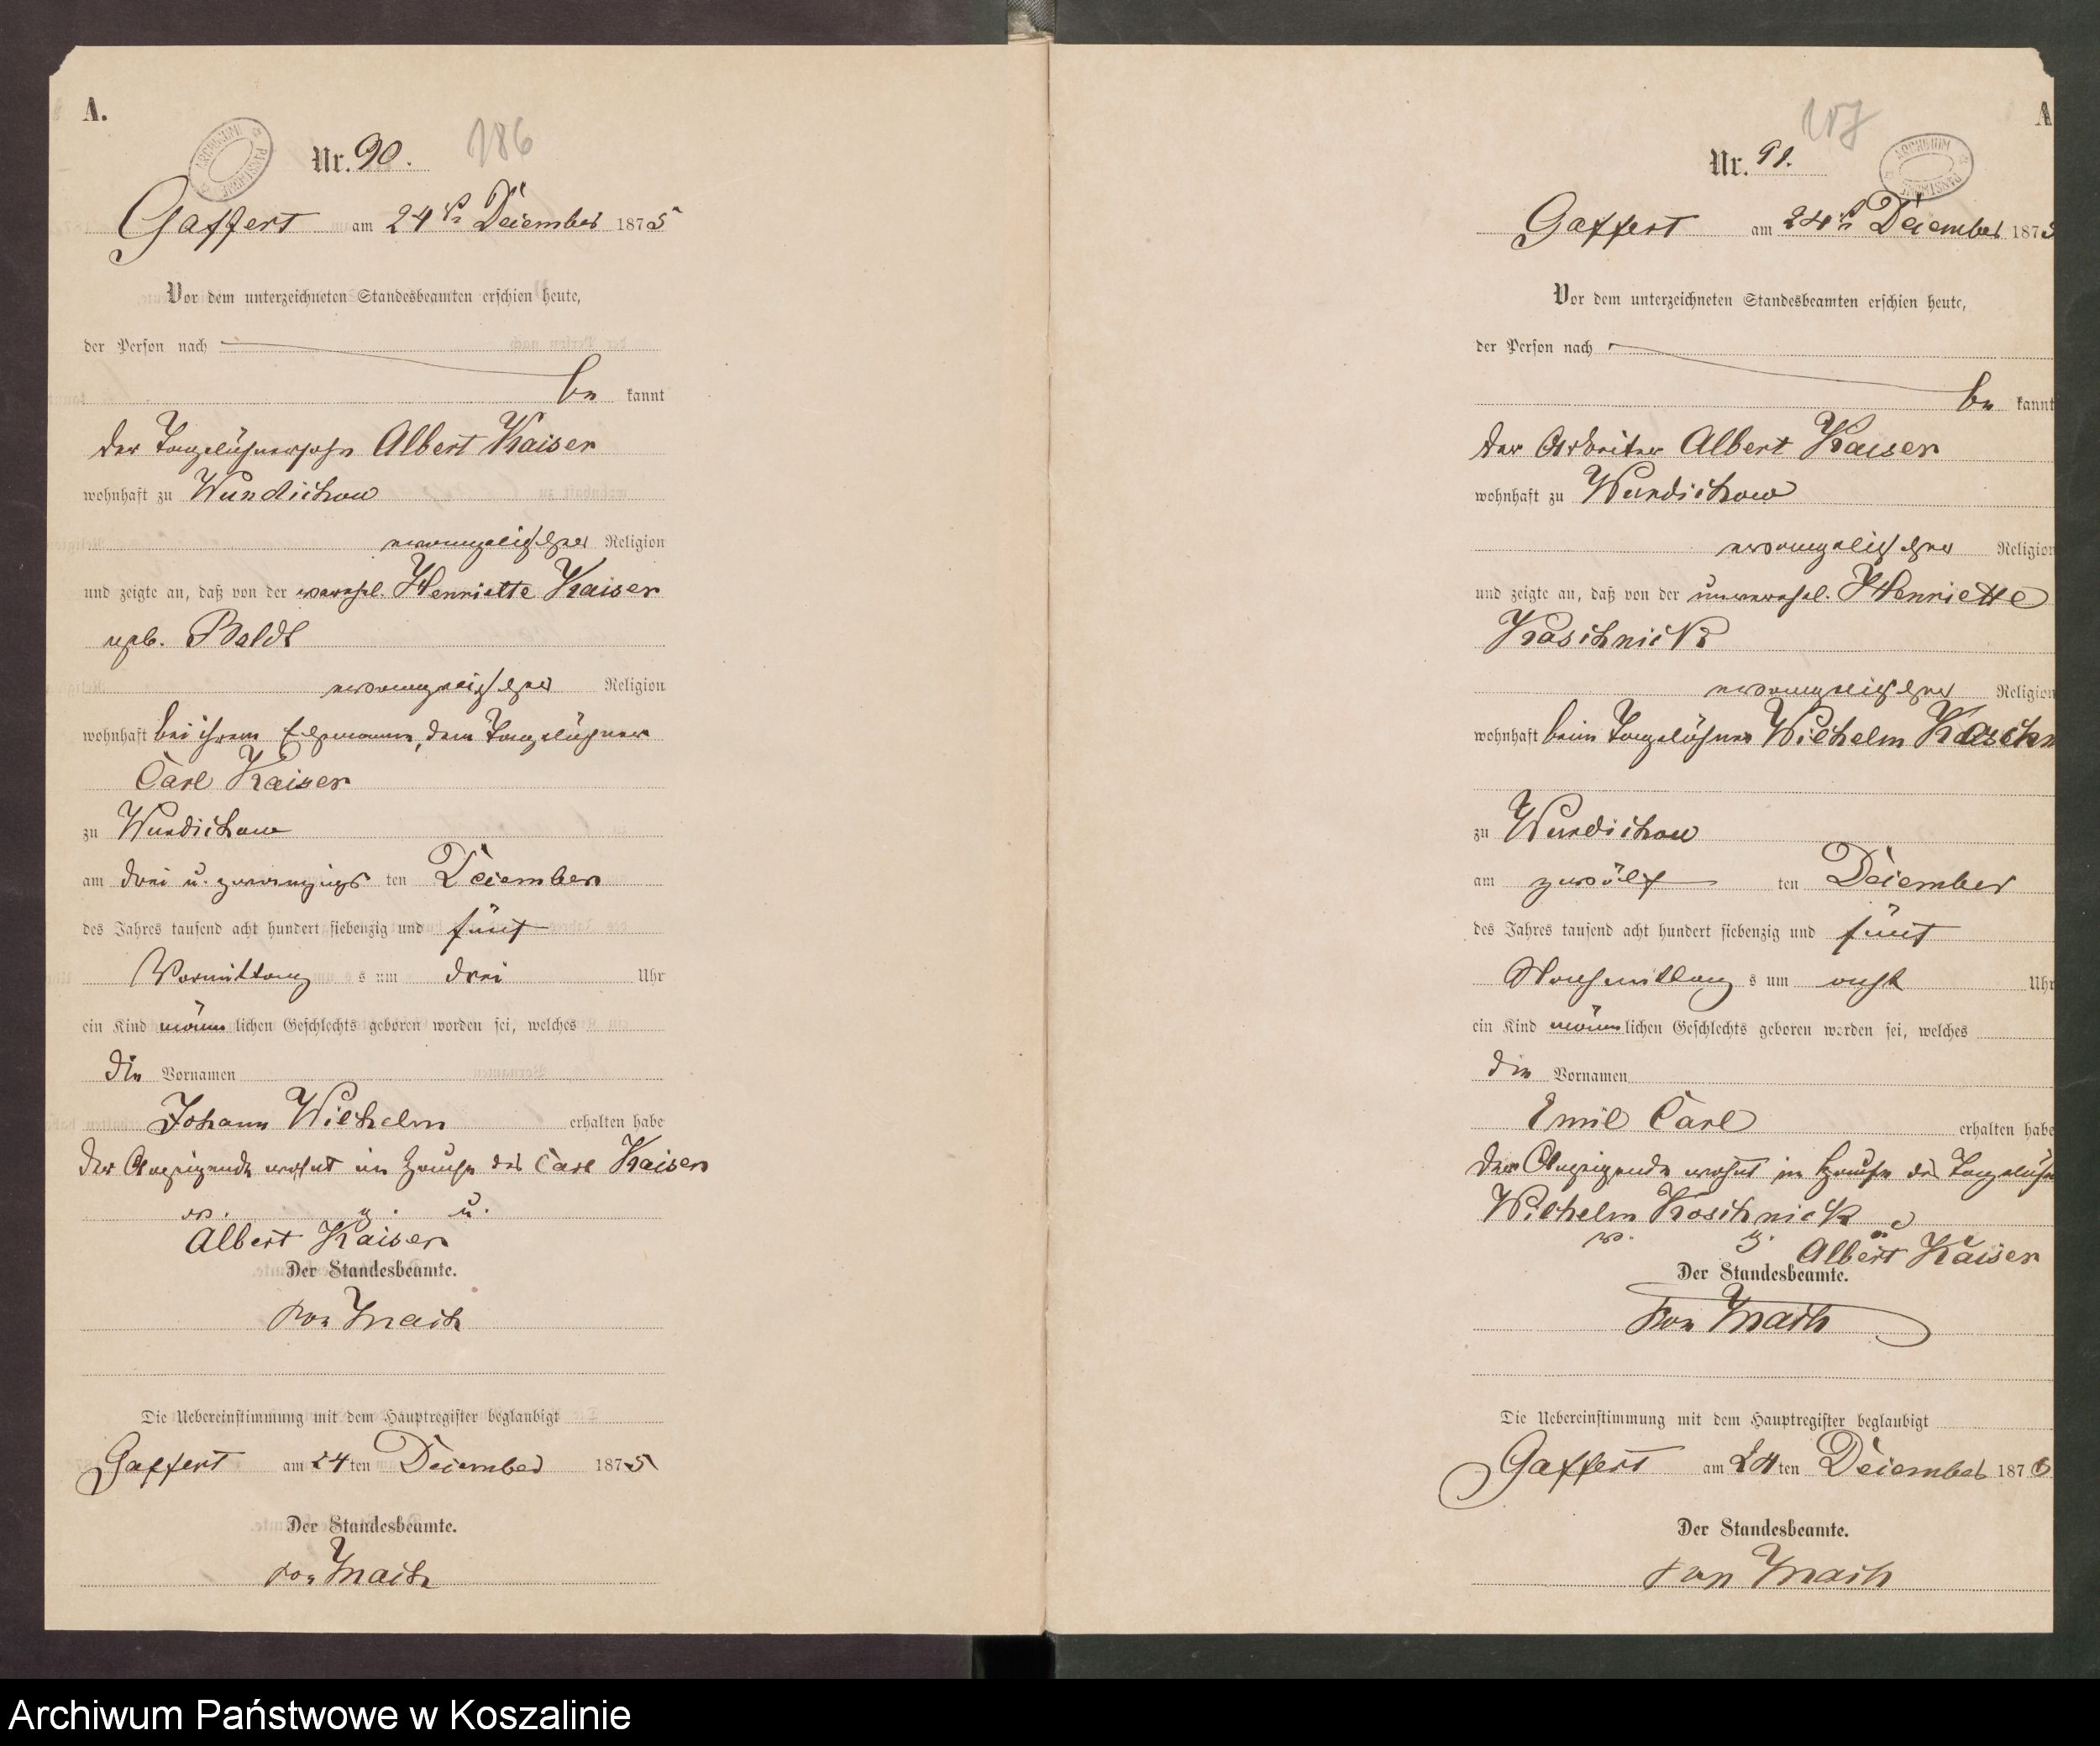 A.
186
ARCHIWUM PAŃSTWOWE
Nr. 90.
Gaffert am 24ten December 1875
Vor dem unterzeichneten Standesbeamten erschien heute,
der Person nach
be kannt
der Tagelöhnersohn Albert Kaiser
wohnhaft zu Wundichow
evangelischer Religion
und zeigte an, daß von der verehel. Henriette Kaiser
geb. Boldt
evangelischer Religion
wohnhaft bei ihrem Ehemanne, dem Tagelöhner
Carl Kaiser
zu Wundichow
am drei u. zwanzigs ten December
des Jahres tausend acht hundert siebenzig und fünf
Vormittag s um drei Uhr
ein Kind männ lichen Geschlechts geboren worden sei, welches
die Vornamen
Johann Wilhelm erhalten habe
Der Anzeigende wohnt im Hause des Carl Kaiser
v. g. u.
Albert Kaiser
Der Standesbeamte.
von Mach
Die Uebereinstimmung mit dem Hauptregister beglaubigt
Gaffert am 24 ten December 1875
Der Standesbeamte.
von Mach
A
187
ARCHIWUM PAŃSTWOWE
Nr. 91.
Gaffert am 24ten December 1875
Vor dem unterzeichneten Standesbeamten erschien heute,
der Person nach
be kannt
der Arbeiter Albert Kaiser
wohnhaft zu Wundichow
evangelischer Religion
und zeigte an, daß von der unverehel. Henriette
Koschnick
evangelischer Religion
wohnhaft beim Tagelöhner Wilhelm Koschn
zu Wundichow
am zwölf ten December
des Jahres tausend acht hundert siebenzig und fünf
Nachmittag s um acht Uhr
ein Kind männ lichen Geschlechts geboren worden sei, welches
die Vornamen
Emil Carl erhalten habe
Der Anzeigende wohnt im Hause des Tagelöhn
Wilhelm Koschnick
v. g. u.
Albert Kaiser
Der Standesbeamte.
von Mach
Die Uebereinstimmung mit dem Hauptregister beglaubigt
Gaffert am 24 ten December 187
Der Standesbeamte.
von Mach
Archiwum Państwowe w Koszalinie